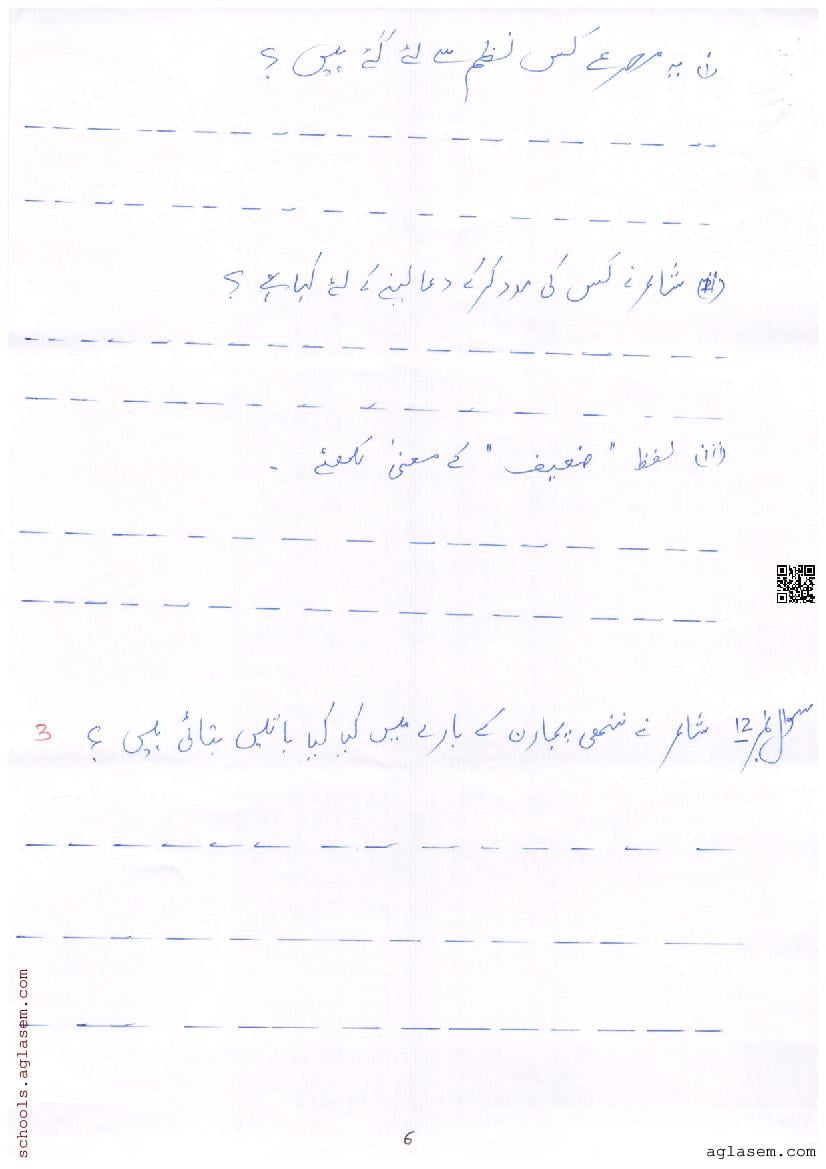 (i) یہ مصرعے کس نظم سے لئے گئے ہیں ؟
(ii) شاعر نے کس کی مدد کرکے دعا لینے کے لئے کہا ہے ؟
(iii) لفظ " ضعیف " کے معنیٰ لکھئے ۔
سوال نمبر 12 شاعر نے ننھی پجارن کے بارے میں کیا کیا باتیں بتائی ہیں ؟ 3
schools.aglasem.com
6
aglasem.com